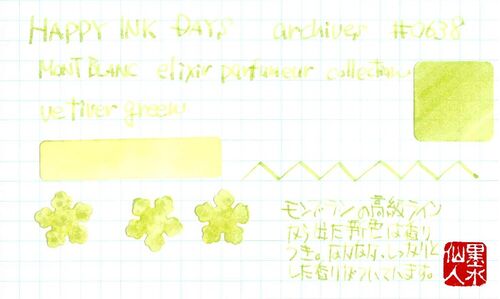 HAPPY INK DAYS archives #0638
MONTBLANC elixir parfumeur collection
vetiver green
モンブランの高級ライン
なら また 青色は香り
つき。なんなん、しっかりと
した香りがついています。
墨水
仙人